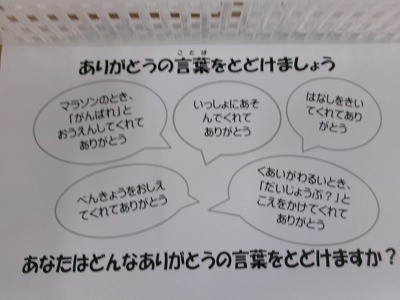 ことば
ありがとうの言葉をとどけましょう
マラソンのとき、
「がんばれ」と
おうえんしてくれて
ありがとう
いっしょにあそ
んでくれて
ありがとう
はなしをきい
てくれてあり
がとう
べんきょうをおしえ
てくれてありがとう
ぐあいがわるいとき、
「だいじょうぶ？」と
こえをかけてくれて
ありがとう
あなたはどんなありがとうの言葉をとどけますか？